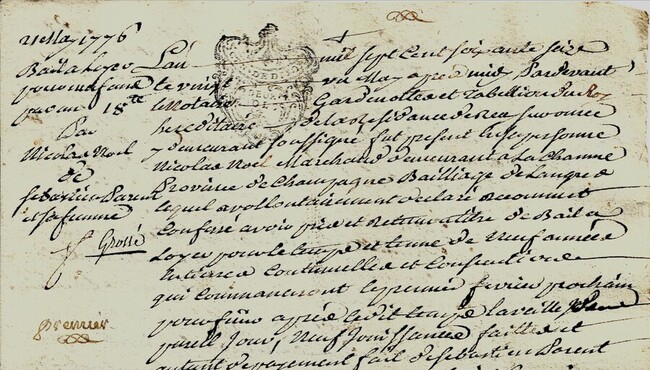 21 May 1776
Bail a loyer
pour neuf années
par an 18 ₶
Par
Nicolas Noel
de
sebastien Parent
et sa femme
Grossé
premier
L'an mil sept Cent soixante seize
le vingt un May apres midy Pardevant
le Notaire Gardenotte et Tabellion du Roy
hereditaire de la Residence de
y demeurant soussigné fut present en sa personne
Nicolas Noel Marchand demeurant a La Chaume
Province de Champagne Bailliage de Langres
lequel a vollontairement declaré Reconnu et
Confessé avoir pris et Retenu a titre de Bail a
Loyer pour le temps et terme de Neuf années
Entieres Continuelles et Consecutives
qui Commanceront le premier fevrier prochain
pour finir apres ledit temps la veille
pareil Jour, Neuf Jouissances faittes et
autant de payement fait de Sebastien Parent